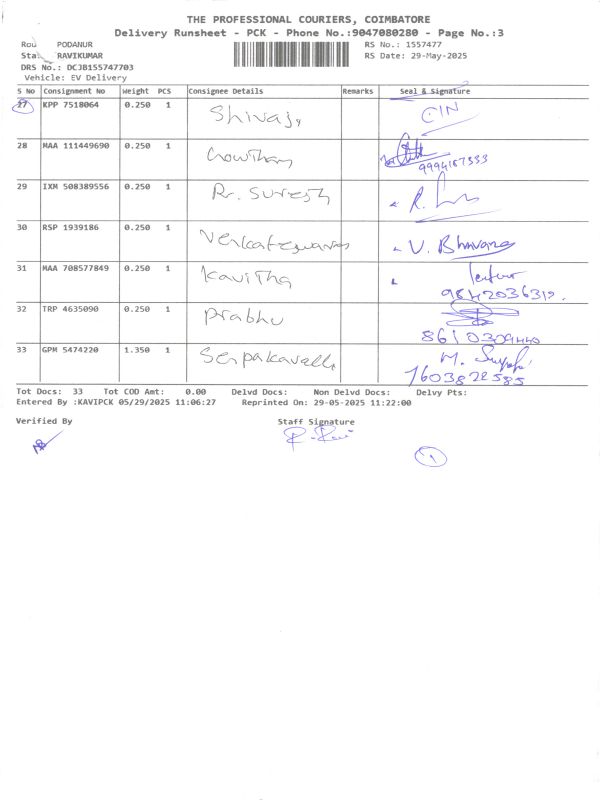 THE PROFESSIONAL COURIERS, COIMBATORE
Delivery Runsheet - PCK - Phone No.:9047080280 - Page No.:3
Rou PODANUR RS No.: 1557477
Sta RAVIKUMAR RS Date: 29-May-2025
DRS No.: DCJB155747703
Vehicle: EV Delivery
S No Consignment No Weight PCS Consignee Details Remarks Seal & Signature
27 KPP 7518064 0.250 1 Shivaji CIN
28 MAA 111449690 0.250 1 Gowtham
9994167333
29 IXM 508389556 0.250 1 Rr. Suresh R.
30 RSP 1939186 0.250 1 Venkateswaran V. Bhuvana
31 MAA 708577849 0.250 1 Kavitha
9842036312.
32 TRP 4635090 0.250 1 Prabhu
8610309440
33 GPM 5474220 1.350 1 M.
7603822585
Tot Docs: 33 Tot COD Amt: 0.00 Delvd Docs: Non Delvd Docs: Delvy Pts:
Entered By :KAVIPCK 05/29/2025 11:06:27 Reprinted On: 29-05-2025 11:22:00
Verified By Staff Signature
R. Ravi
1